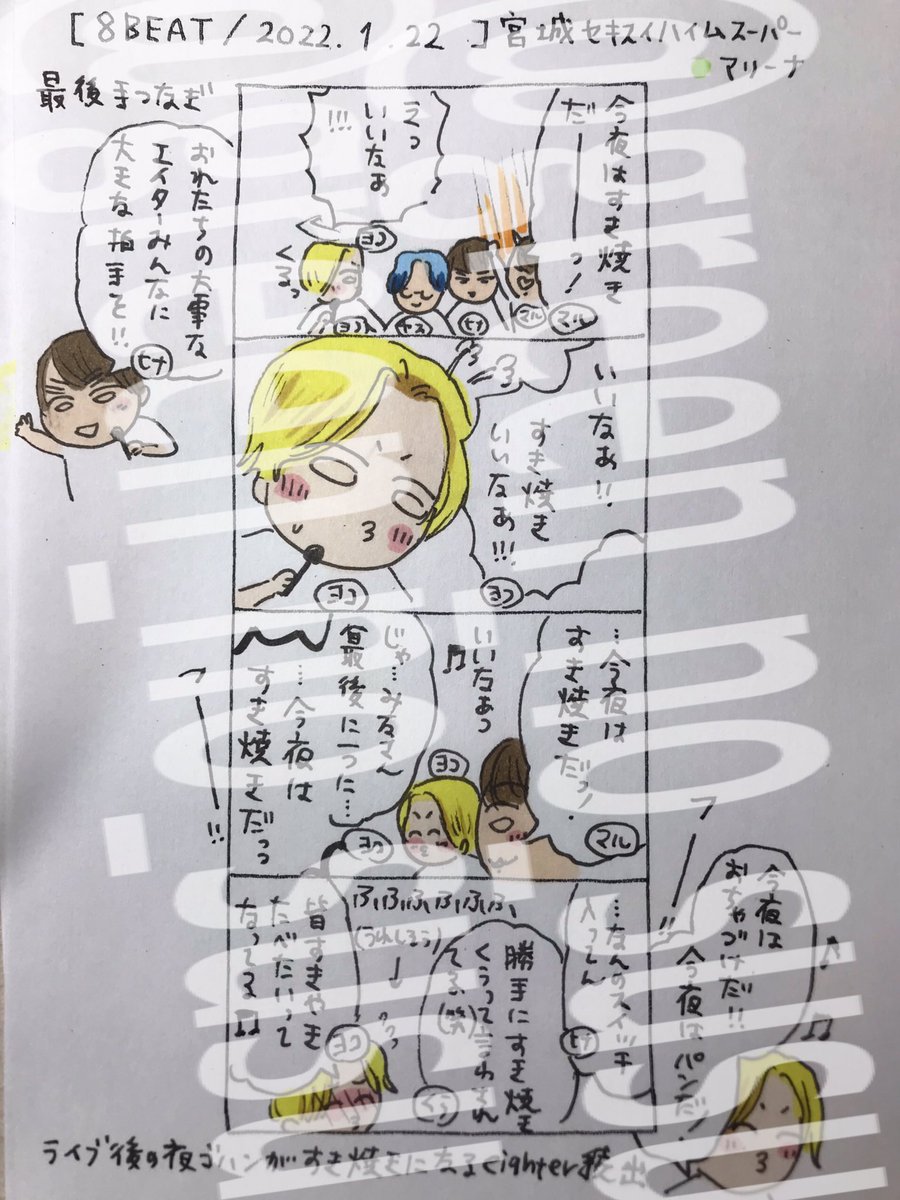 [8BEAT/2022.1.22.]宮城セキスイハイムスーパー
アリーナ
最後手つなぎ
おれたちの大事な
エイターみんなに
大きな拍手を!!
ヒナ
今夜はすき焼き
だーーーっ!
えっ
いいなぁ
!!!
ヨコ
くるっ
ヨコ
ヤス
ヒナ
マル
マル
いいなぁ!!
すき焼き
いいなぁ!!!
ヨコ
ヨコ
…今夜は
すき焼きだっ!
マル
いいなぁっ
ヨコ
じゃ…みなさん
最後に一つに…
…今夜は
すき焼きだっっ
ーーー!!
ヨコ
…なんのスイッチ
入ってん
ヒナ
勝手にすき焼き
くうって言わされ
てる(笑)
ふふふふふふ
(うれしそう)
皆すきやき
たべたいって
なってる
ヨコ
今夜は
おちゃづけだ!!
今夜はパンだ!
ライブ後の夜ゴハンがすき焼きになるeighter続出